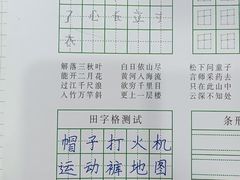 了 心 在 立 寸
衣
解落三秋叶
能开二月花
过江千尺浪
入竹万竿斜
白日依山尽
黄河入海流
欲穷千里目
更上一层楼
松下问童子
言师采药去
只在此山中
云深不知处
田字格测试
条形
帽子打火机
运动裤地图